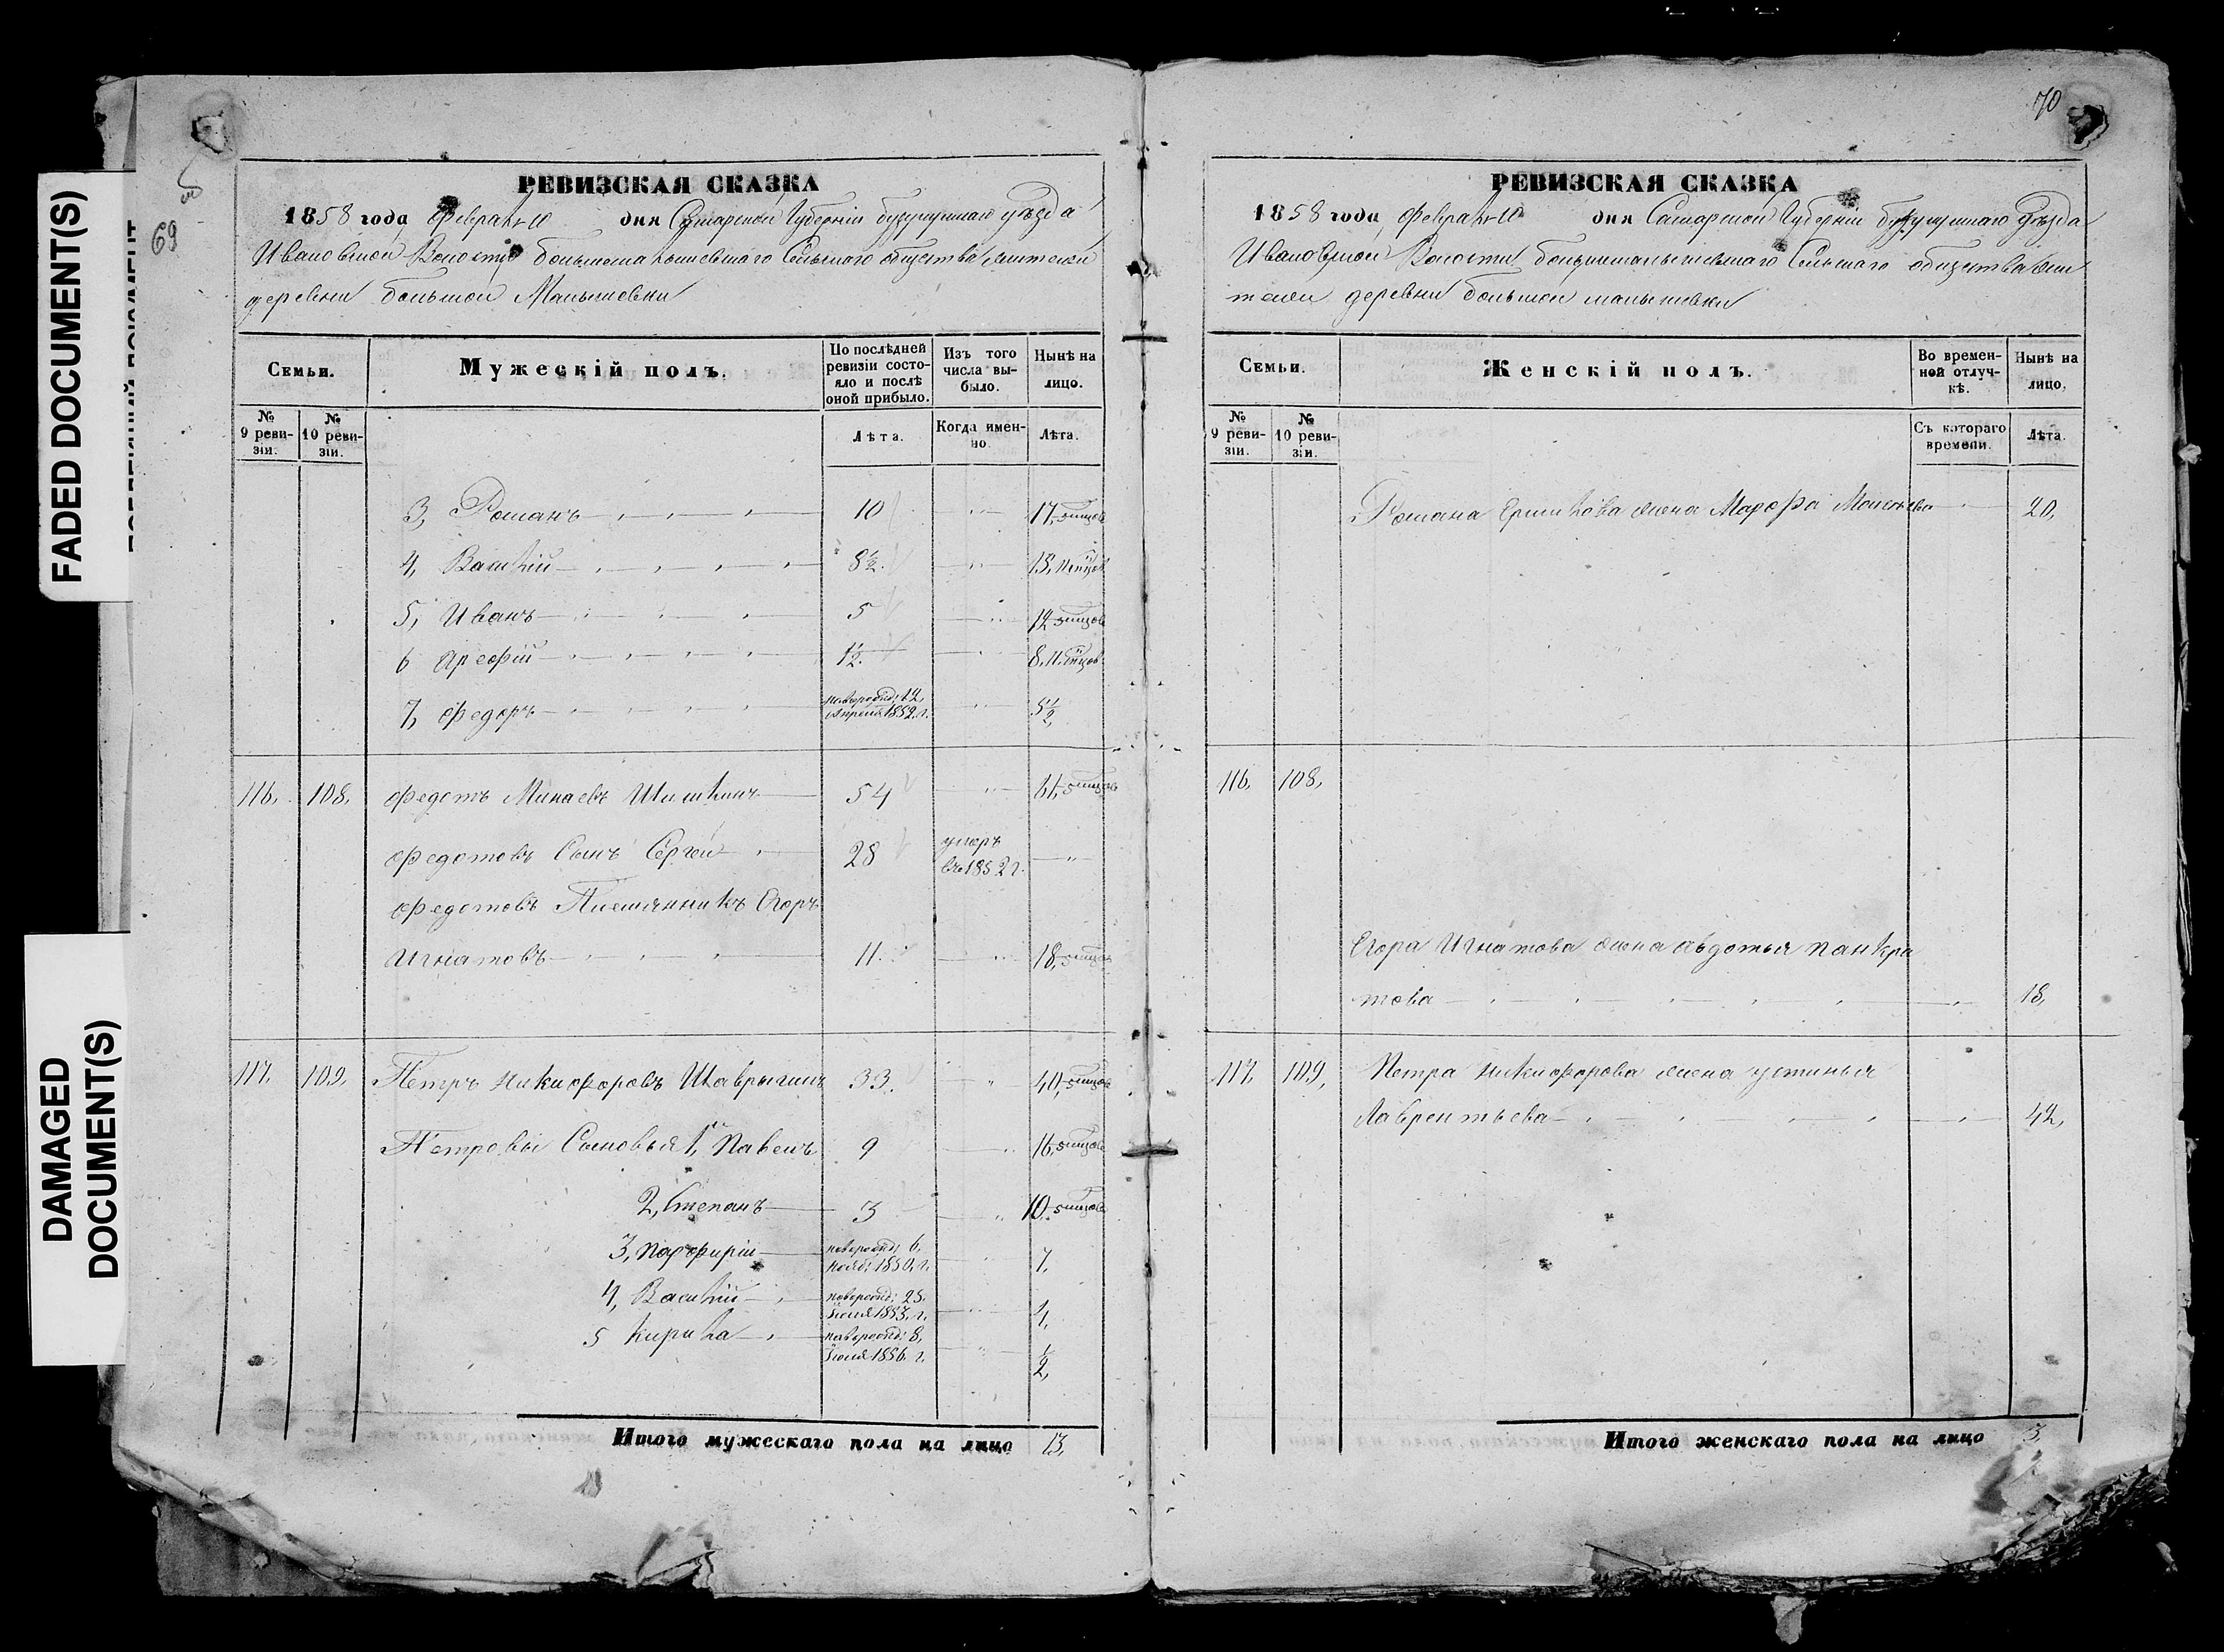 70
69
FADED DOCUMENT(S)
DAMAGED
DOCUMENT(S)
РЕВИЗСКАЯ СКАЗКА
1858 года февраля 10 дня Самарской Губернiи бузулукскаго уѣзда
Ивановской Волости большемалышевскаго Сельскаго общества жителей
деревни большой Малышевки
Семьи.
Мужескiй полъ.
По послѣдней ревизiи состояло и послѣ оной прибыло.
Изъ того числа выбыло.
Нынѣ на лицо.
№ 9 ревизiи.
№ 10 ревизiи.
Лѣта.
Когда именно.
Лѣта.
3, Романъ 10 17,
4, Василiй 8½. 15,
5, Иванъ 5 12
6 Арефiй 1½. 8.
7, Федоръ новорожд: 12, апреля 1852. г. 5½
116. 108. Федотъ Минаевъ Шишкинъ 54 61,
Федотовъ Сынъ Сергей 28 умеръ въ 1852 г.
Федотовъ Племянникъ Егоръ
Игнатовъ 11. 18,
117. 109. Петръ Никифоровъ Шаврыгинъ 33. 40,
Петровы Сыновья 1, Павелъ 9 16,
2, Степанъ 3 10.
3, Парфирiй новорожд: 6, нояб: 1850. г. 7.
4, Василiй новорожд: 25. Iюля 1853. г. 4,
5 Кирила новорожд: 8, Iюля 1856. г. ½,
Итого мужескаго пола на лицо 13,
РЕВИЗСКАЯ СКАЗКА
1858 года февраля 10 дня Самарской Губернiи бузулукскаго уѣзда
Ивановской Волости большемалышевскаго Сельскаго общества жи
телей деревни большой малышевки
Семьи.
Женскiй полъ.
Во временной отлучкѣ.
Нынѣ на лицо.
№ 9 ревизiи.
№ 10 ревизiи.
Съ котораго времени.
Лѣта.
Романа Ермилова жена Марфа 20,
116. 108,
Егора Игнатова жена авдотья панкра
това 18,
117. 109, Петра Никифорова жена устинья
Лаврентьева 42,
Итого женскаго пола на лицо 3,